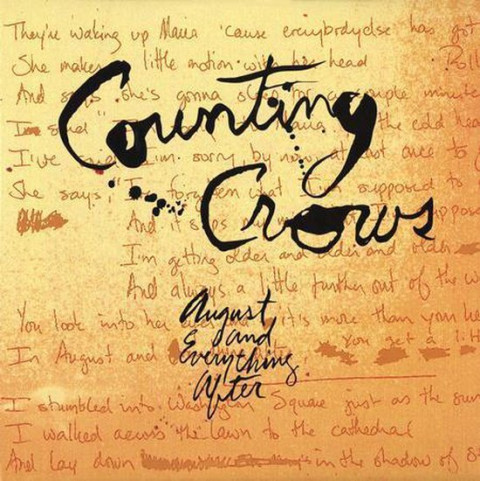 They're waking up Maria 'cause everybody else has got
She makes little motion with her head
And says she's gonna sleep for a couple minute
I've said I'm sorry by now, at least once to
She says, "I've forgotten what I'm supposed to
And it slips my
I'm getting older and older and older
And always a little further out of the w
You look into her and it's more than your he
In August and
You get a litt
I stumbled into Washington Square just as the sun
I walked across the lawn to the cathedral
And lay down in the shadow of S
Counting
Crows
August
and
Everything
After